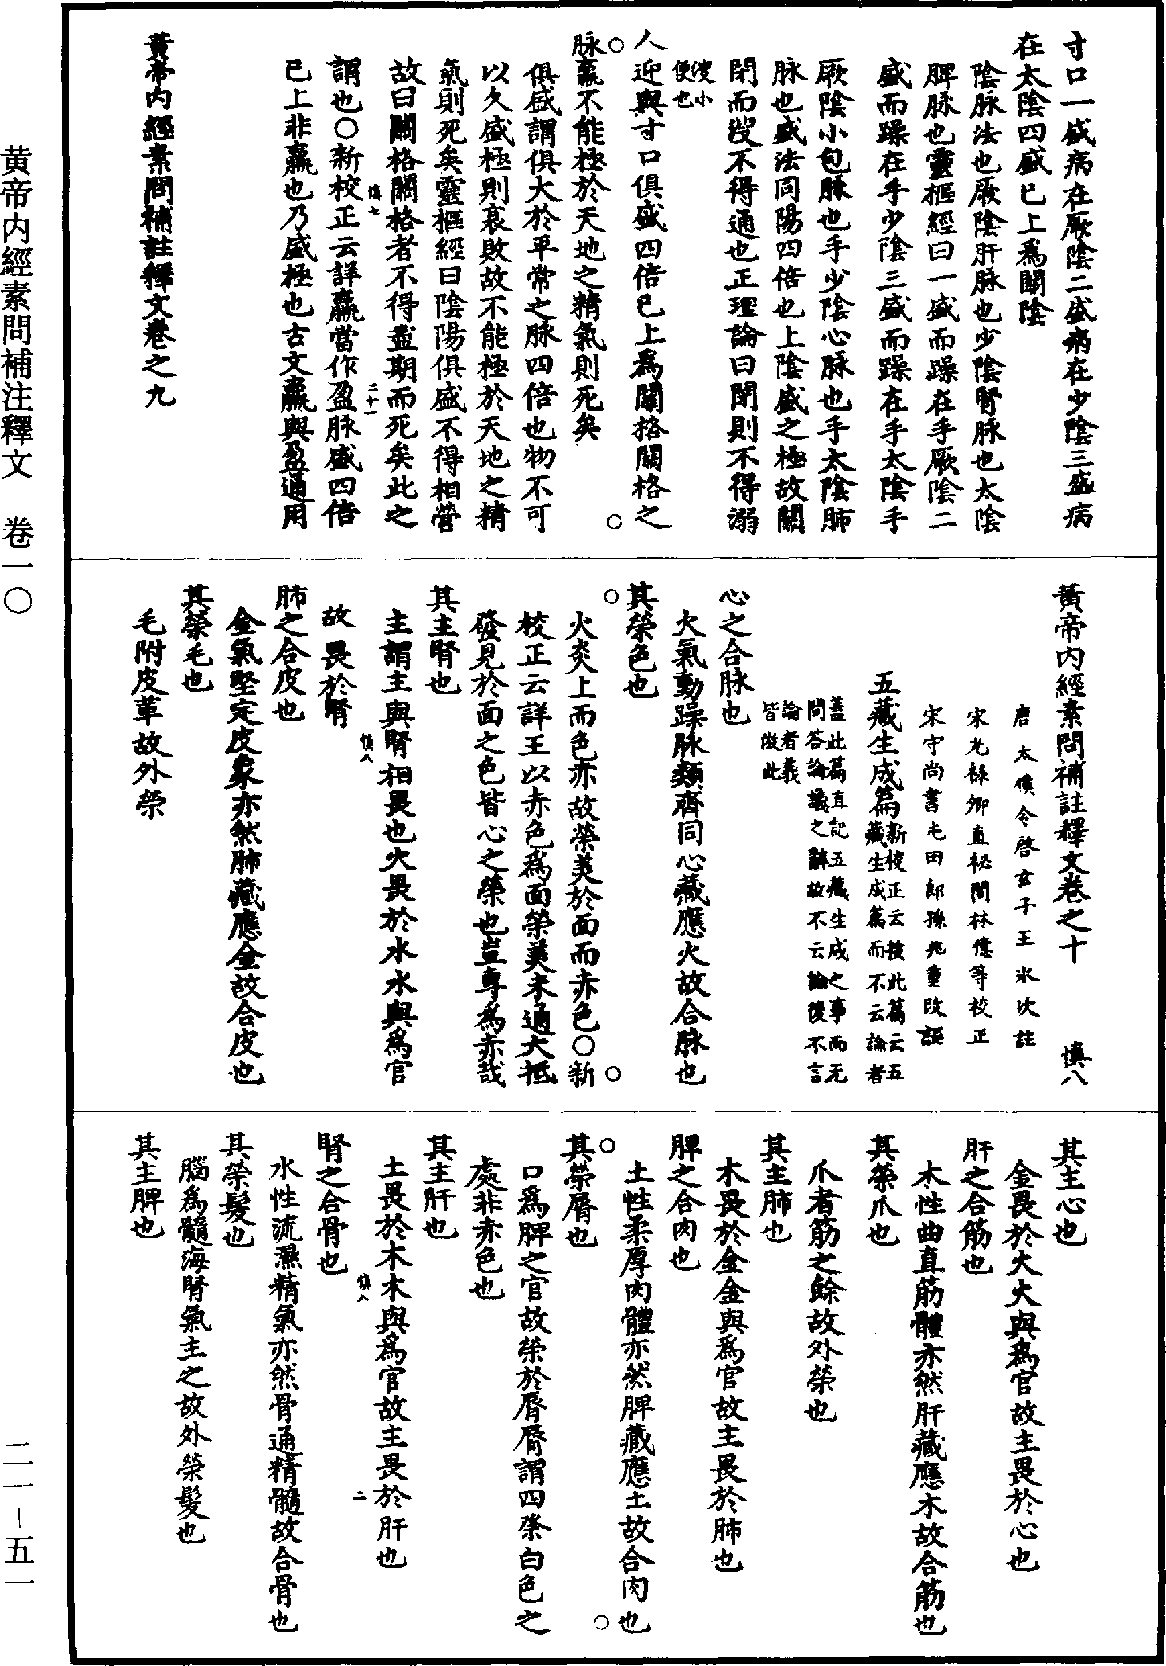 寸口一盛病在厥陰二盛病在少陰三盛病
在太陰四盛已上爲關陰
陰脉法也厥陰肝脉也少陰腎脉也太陰
脾脉也靈樞經曰一盛而躁在手厥陰二
盛而躁在手少陰三盛而躁在手太陰手
厥陰小包脉也手少陰心脉也手太陰肺
脉也盛法同陽四倍也上陰盛之極故關
閉而溲不得通也正理論曰閉則不得溺
溲小
便也
人迎與寸口俱盛四倍已上爲關格關格之
脉羸不能極於天地之精氣則死矣
俱盛謂俱大於平常之脉四倍也物不可
以久盛極則衰敗故不能極於天地之精
氣則死矣靈樞經曰陰陽俱盛不得相營
故曰關格關格者不得盡期而死矣此之
慎七
二十一
謂也〇新校正云詳羸當作盈脉盛四倍
已上非羸也乃盛極也古文羸與盈通用
黃帝內經素問補註釋文卷之九
黃帝內經素問補註釋文卷之十
慎八
唐太僕令啓玄子王氷次註
宋光祿卿直祕閣林億等校正
宋守尚書屯田郎孫兆重改誤
五藏生成篇
新校正云按此篇云五
藏生成篇而不云論者
蓋此篇直記五藏生成之事而无
問答論議之辭故不云論後不言
論者義
皆倣此
心之合脉也
火氣動躁脉類齊同心藏應火故合脉也
其榮色也
火炎上而色赤故榮美於面而赤色〇新
校正云詳王以赤色爲面榮美未通大抵
發見於面之色皆心之榮也豈專爲赤哉
其主腎也
主謂主與腎相畏也火畏於水水與爲官
慎八
故畏於腎
肺之合皮也
金氣堅定皮象亦然肺藏應金故合皮也
其榮毛也
毛附皮革故外榮
其主心也
金畏於火火與爲官故主畏於心也
肝之合筋也
木性曲直筋體亦然肝藏應木故合筋也
其榮爪也
爪者筋之餘故外榮也
其主肺也
木畏於金金與爲官故主畏於肺也
脾之合肉也
土性柔厚肉體亦然脾藏應土故合肉也
其榮脣也
口爲脾之官故榮於脣脣謂四際白色之
處非赤色也
其主肝也
土畏於木木與爲官故主畏於肝也
慎八
二
腎之合骨也
水性流濕精氣亦然骨通精髓故合骨也
其榮髮也
腦爲髓海腎氣主之故外榮髮也
其主脾也
黄帝内經素問補注釋文 卷一〇
二一—五一